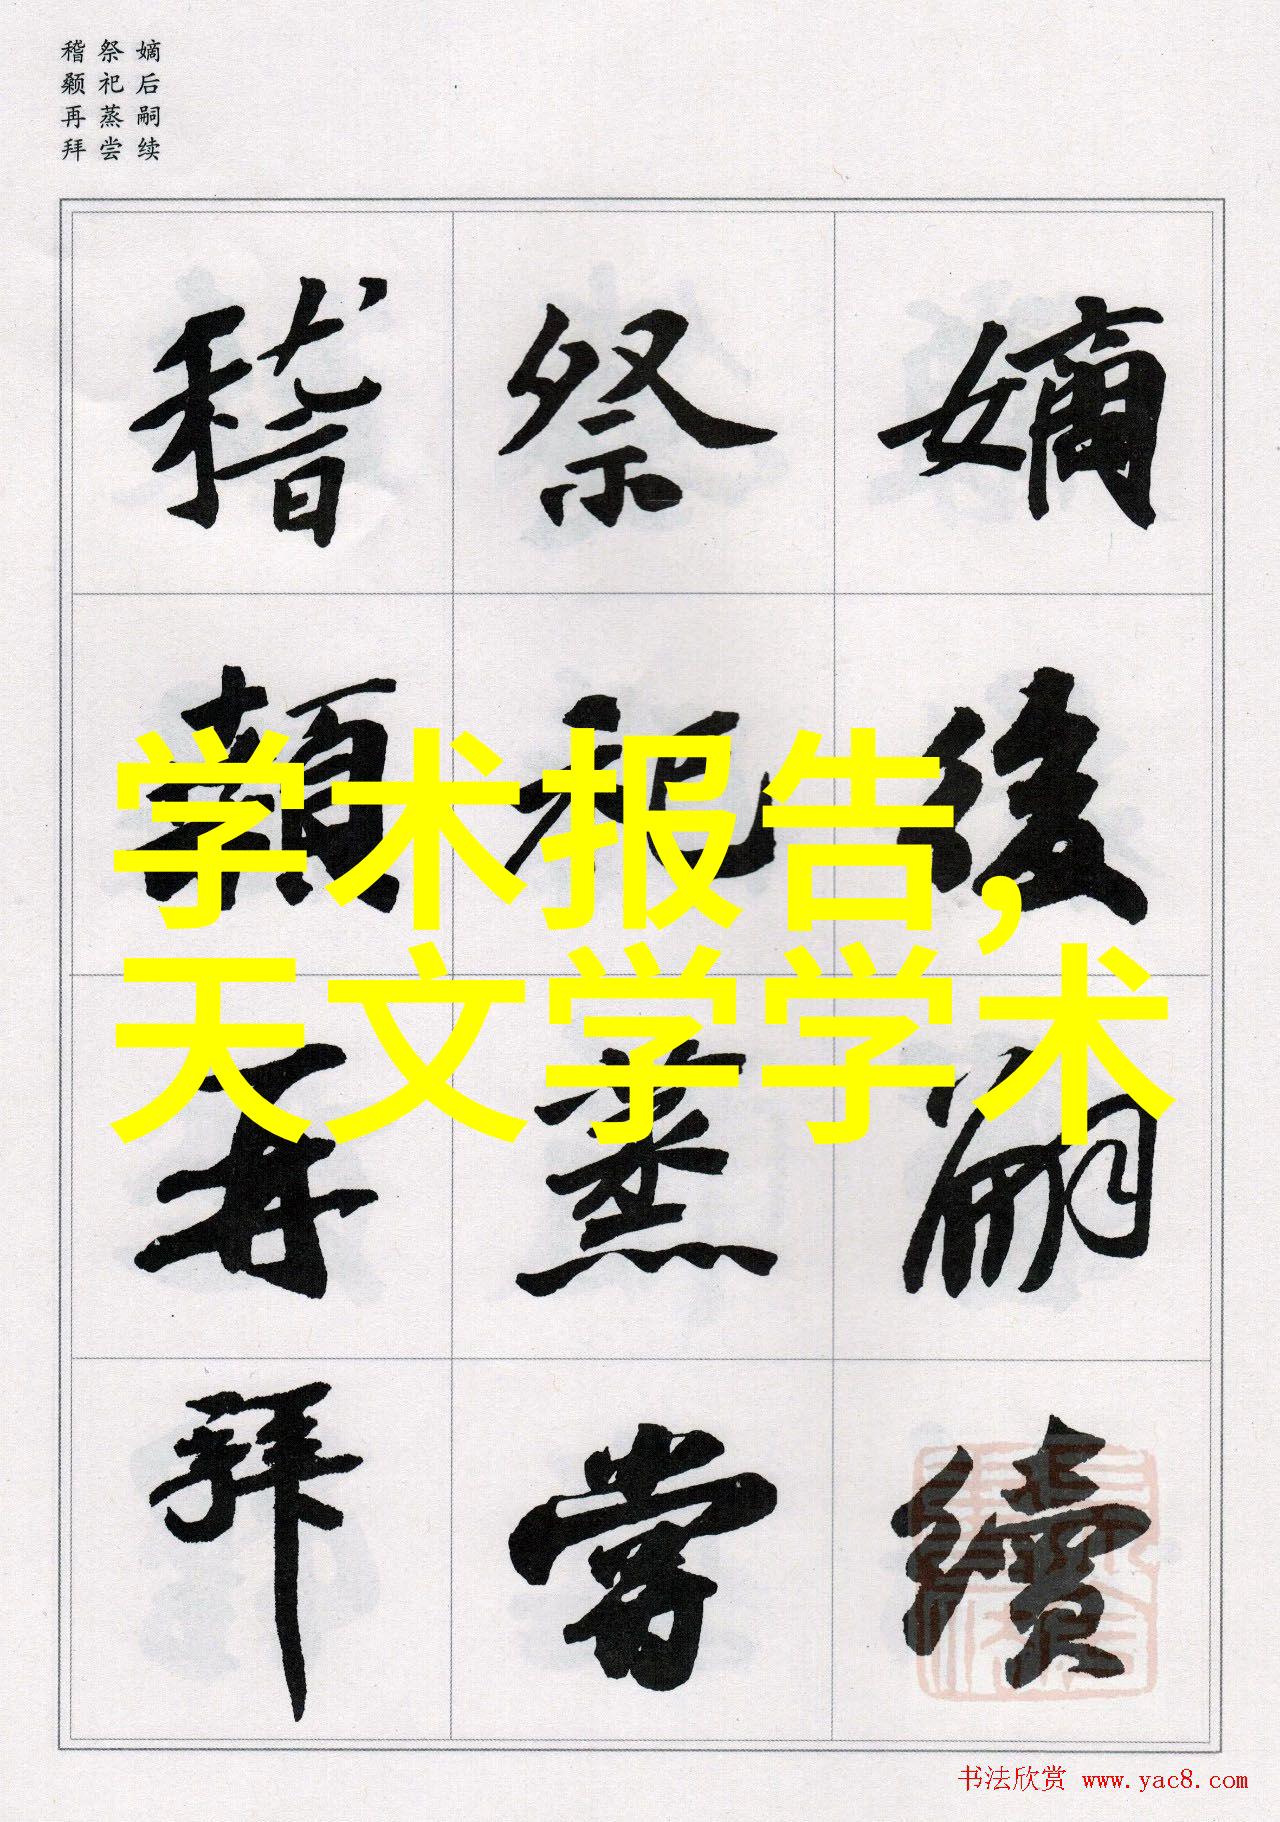 嫡后嗣续
祭祀蒸尝
稽颡再拜
嫡後嗣續
祭祀蒸嘗
稽顙再拜
学术报告，
天文学学术
书法欣赏 www.yac8.com